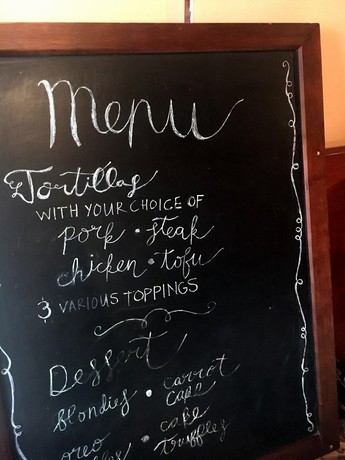 Menu
Tortillas
WITH YOUR CHOICE OF
pork • steak
chicken • tofu
& VARIOUS TOPPINGS
Dessert
blondies • carrot
cake
oreo • cake
truffles